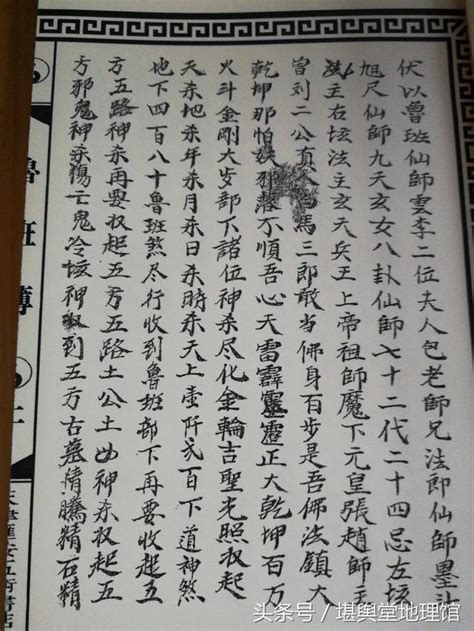 伏以魯班仙師雲李二位夫人包老師兄法郎仙師墨斗
旭尺仙師九天玄女八卦仙師七十二代二十四忌左坛
法主右坛法主玄天兵王上帝祖師魔下元皇張趙師主
官刘二公真馬三郎敢当佛身百步是吾佛法鎮大
乾坤那怕妖邪落不順吾心天雷霹靂靈正大乾坤百万
火斗金剛大步部下諸位神杀尽化金輪吉聖光照収起
天杀地杀年杀月杀日杀時杀天上壶阡弍百下道神煞
地下四百八十鲁班煞尽行收到魯班部下再要收起五
方五路神杀再要収起五方五路土公土母神杀収起五
方邪鬼神杀傷亡鬼冷坛神収到五方古墓精騰精石精
魯班簿
五術書店
头条号／堪舆堂地理馆